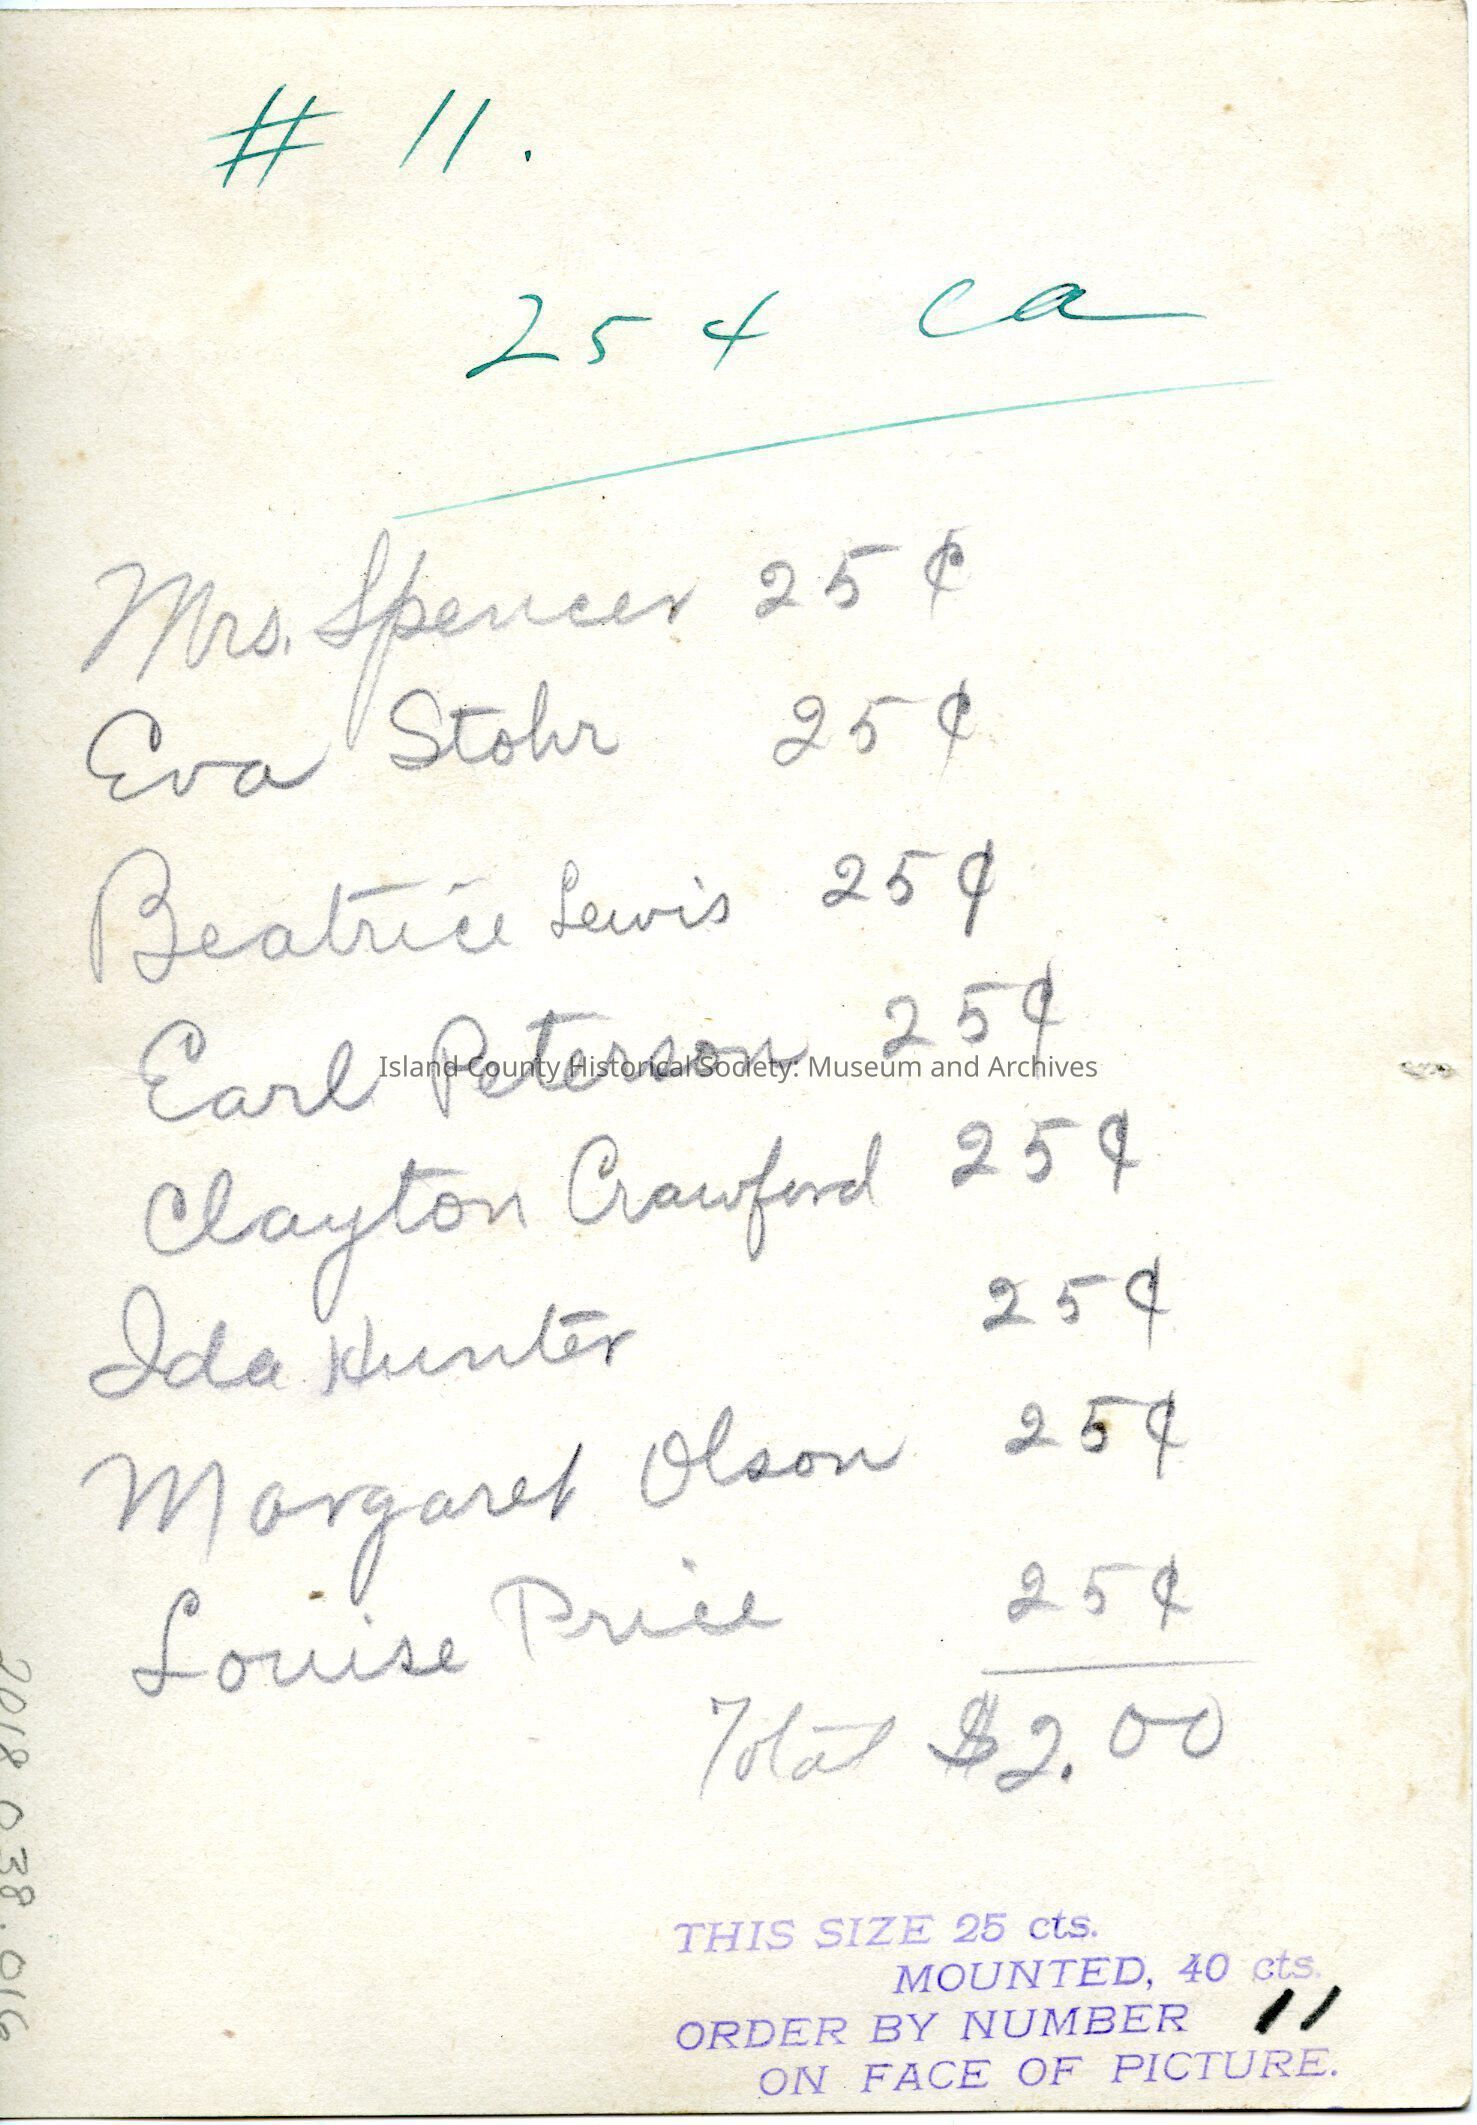 # 11.
25 ¢ ea
Mrs. Spencer 25 ¢
Eva Stohr 25 ¢
Beatrice Lewis 25 ¢
Earl Peterson 25 ¢
Island County Historical Society: Museum and Archives
Clayton Crawford 25 ¢
Ida Hunter 25 ¢
Margaret Olson 25 ¢
Louise Price 25 ¢
Total $2.00
THIS SIZE 25 cts.
MOUNTED, 40 cts.
ORDER BY NUMBER 11
ON FACE OF PICTURE.
2018.038.016